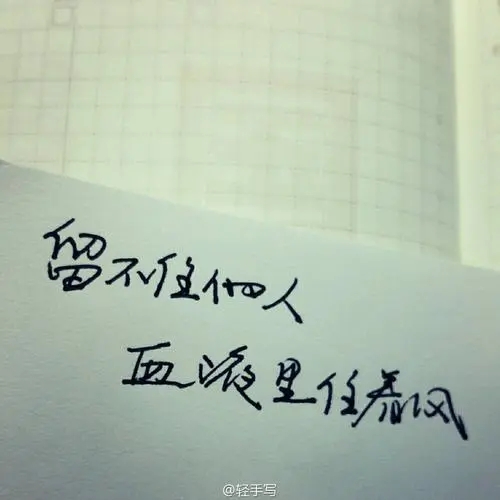 留不住他人
血液里住春风
@轻手写